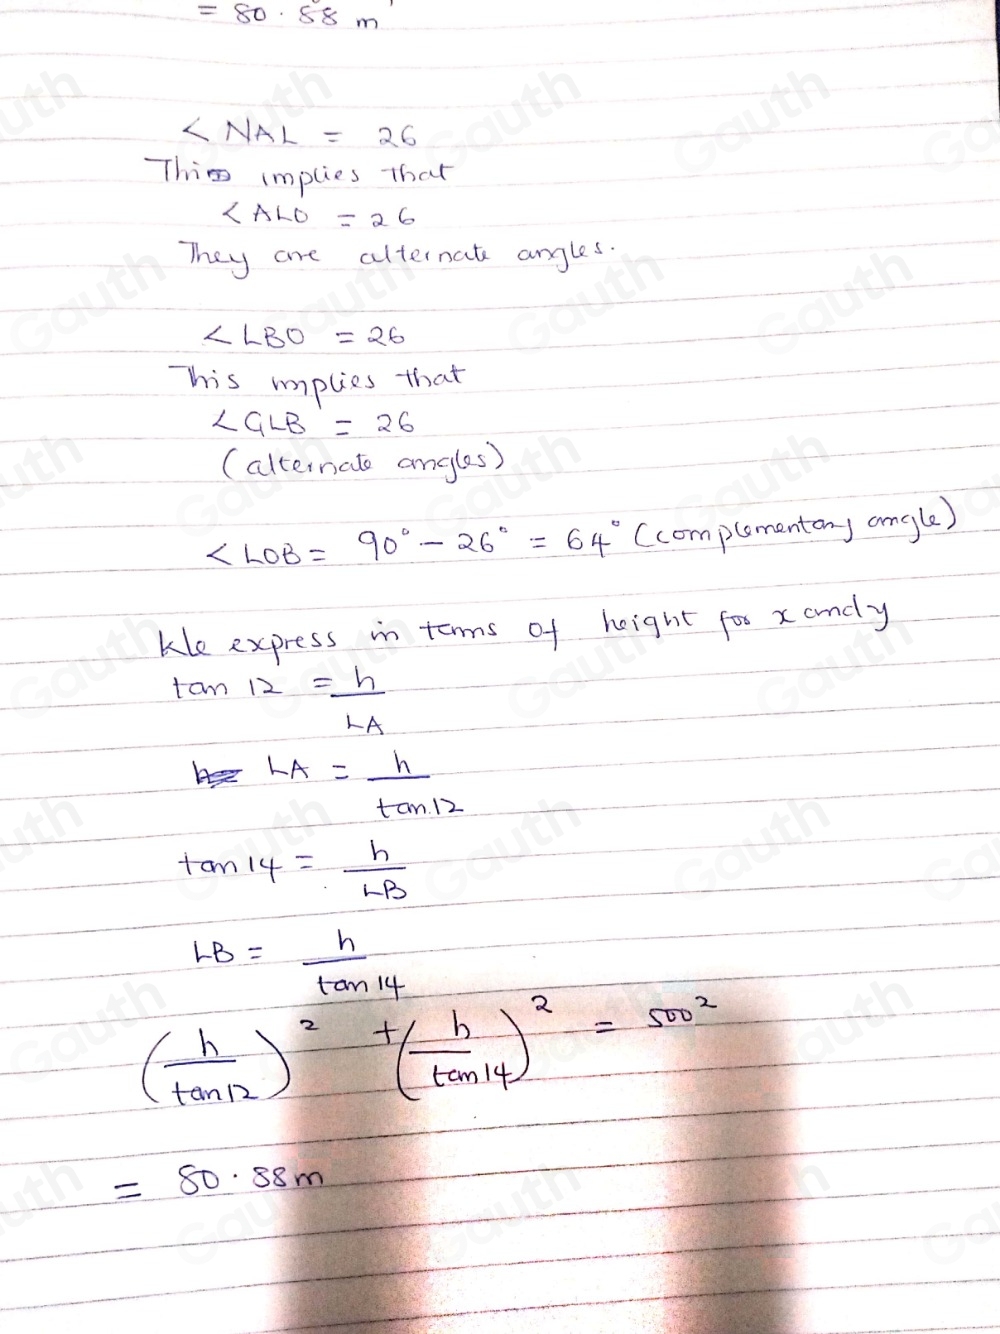 = 80.88 m
< NAL = 26
This implies that
< ALO = 26
They are alternate angles.
< LBO = 26
This implies that
< GLB = 26
(alternate angles)
< LOB = 90° - 26° = 64° (complementary angle)
We express in terms of height for x and y
tan 12 = h
LA
LA = h
tan 12
tan 14 = h
LB
LB = h
tan 14
(h/tan 12)² + (h/tan 14)² = 500²
= 80.88m